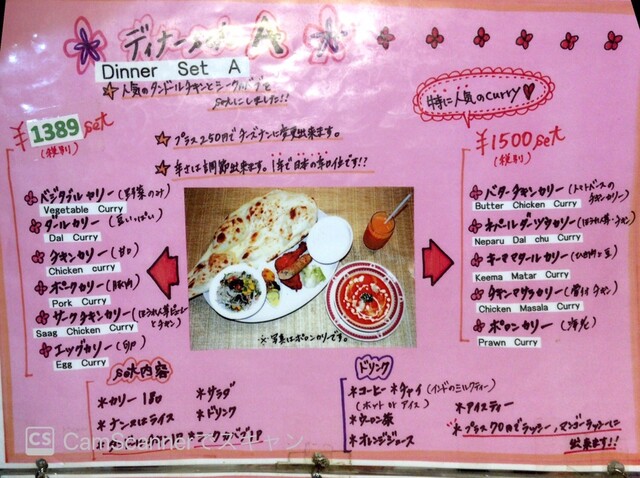 ディナーセット A
Dinner Set A
人気のタンドールチキンとシークカバブを
setにしました!!
¥1389 set
(税別)
プラス250円でチーズナンに変更出来ます。
辛さは調節出来ます。1辛で日本の辛口位です!!
特に人気のcurry
¥1500set
(税別)
ベジタブルカリー(野菜のみ)
Vegetable Curry
ダールカリー(豆いっぱい)
Dal Curry
チキンカリー(甘口)
Chicken curry
ポークカリー(豚肉)
Pork Curry
サークチキンカリー(ほうれん草
とチキン)
Saag Chicken Curry
エッグカリー(卵)
Egg Curry
バターチキンカリー(トマトベースの
チキンカリー)
Butter Chicken Curry
ネパールダーツカリー(ほうれん草・チキン)
Neparu Dal chu Curry
キーママタールカリー(ひき肉と豆)
Keema Matar Curry
チキンマサラカリー(骨付チキン)
Chicken Masala Curry
ポロンカリー(海老)
Prawn Curry
※写真はポロンカリーです。
set内容
*カリー180
*ナン又はライス
*サラダ
*ドリンク
ドリンク
*コーヒー *チャイ(インドのミルクティー)
(ホット or アイス)
*ウーロン茶
*オレンジジュース
*アイスティー
*プラス70円でラッシー、マンゴーラッシーに
出来ます!!
CS CamScannerでスキャン